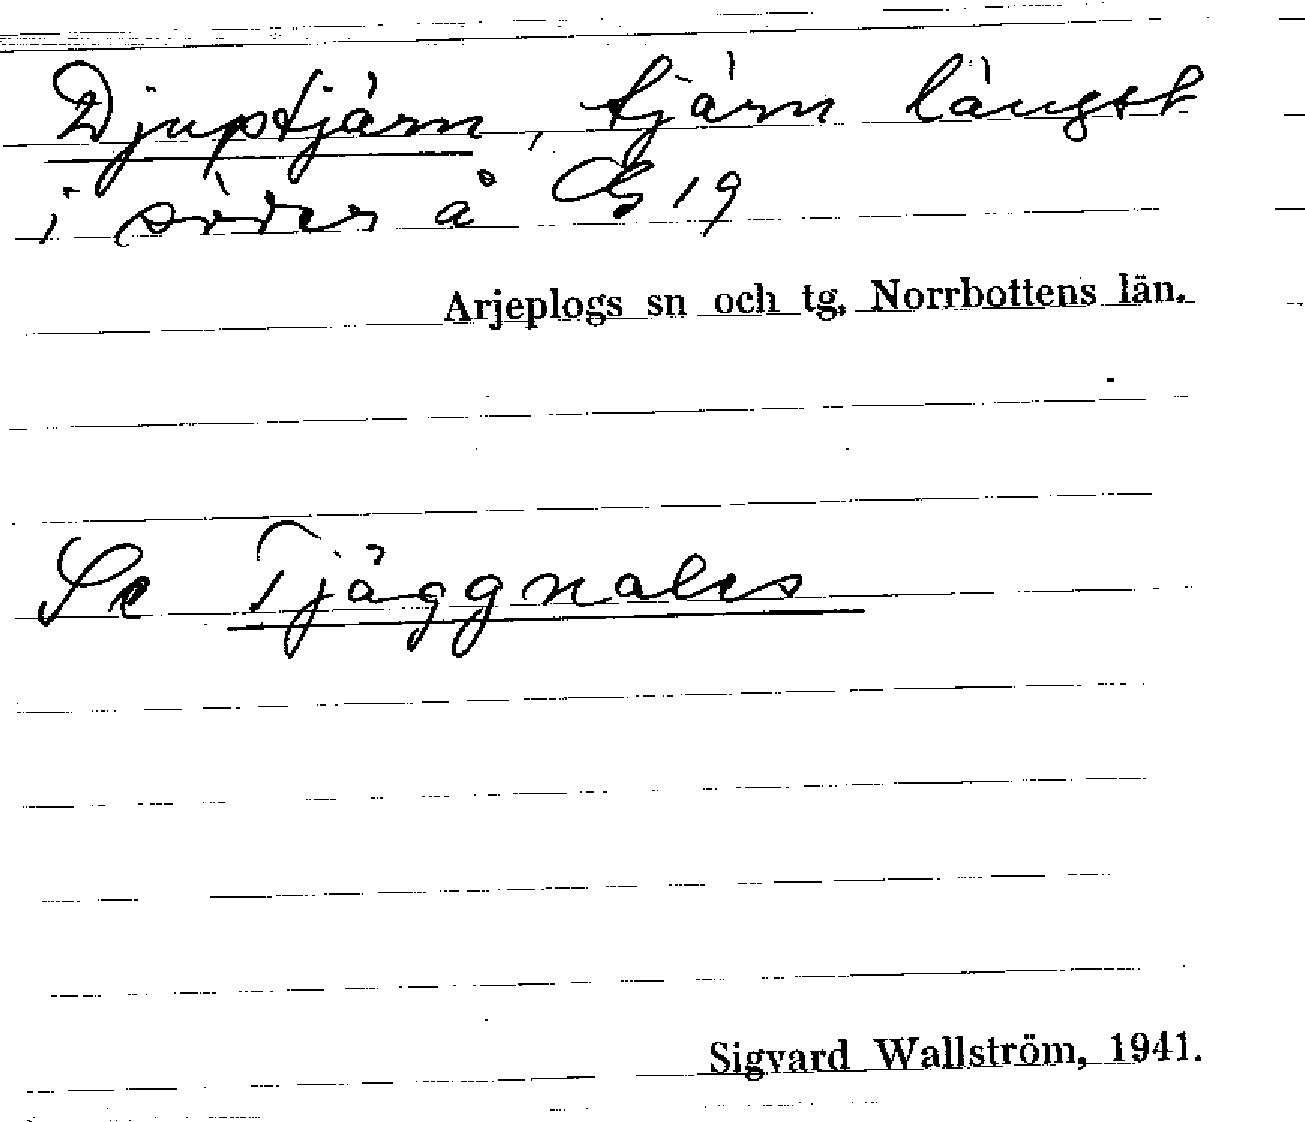 Djuptjärn, tjärn längst
i söder å G 19
Arjeplogs sn och tg, Norrbottens län.
Se Tjäggnales
Sigvard Wallström, 1941.